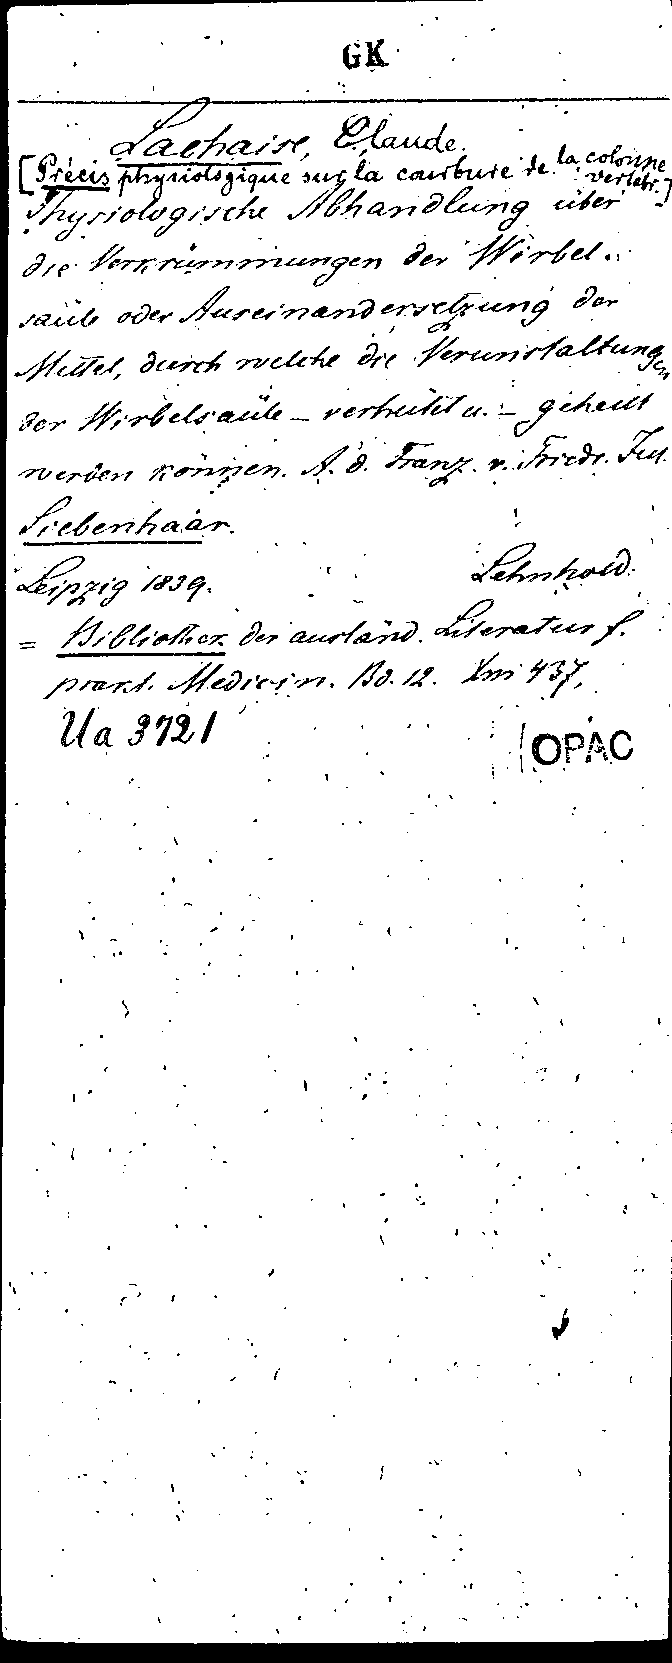 GK
Lachaise, Claude.
[Précis physiologique sur la courbure de la colonne vertebr.]
Physiologische Abhandlung über
die Verkrümmungen der Wirbel-
säule oder Auseinandersetzung der
Mittel, durch welche die Verunstaltungen
der Wirbelsäule - verhütet u. - geheilt
werden können. A. d. Franz. v. Friedr. Jul.
Siebenhaar.
Leipzig 1839. Lehnhold.
= Bibliothek der ausländ. Literatur f.
prakt. Medicin. Bd. 12. 437,
Ua 3721
OPAC